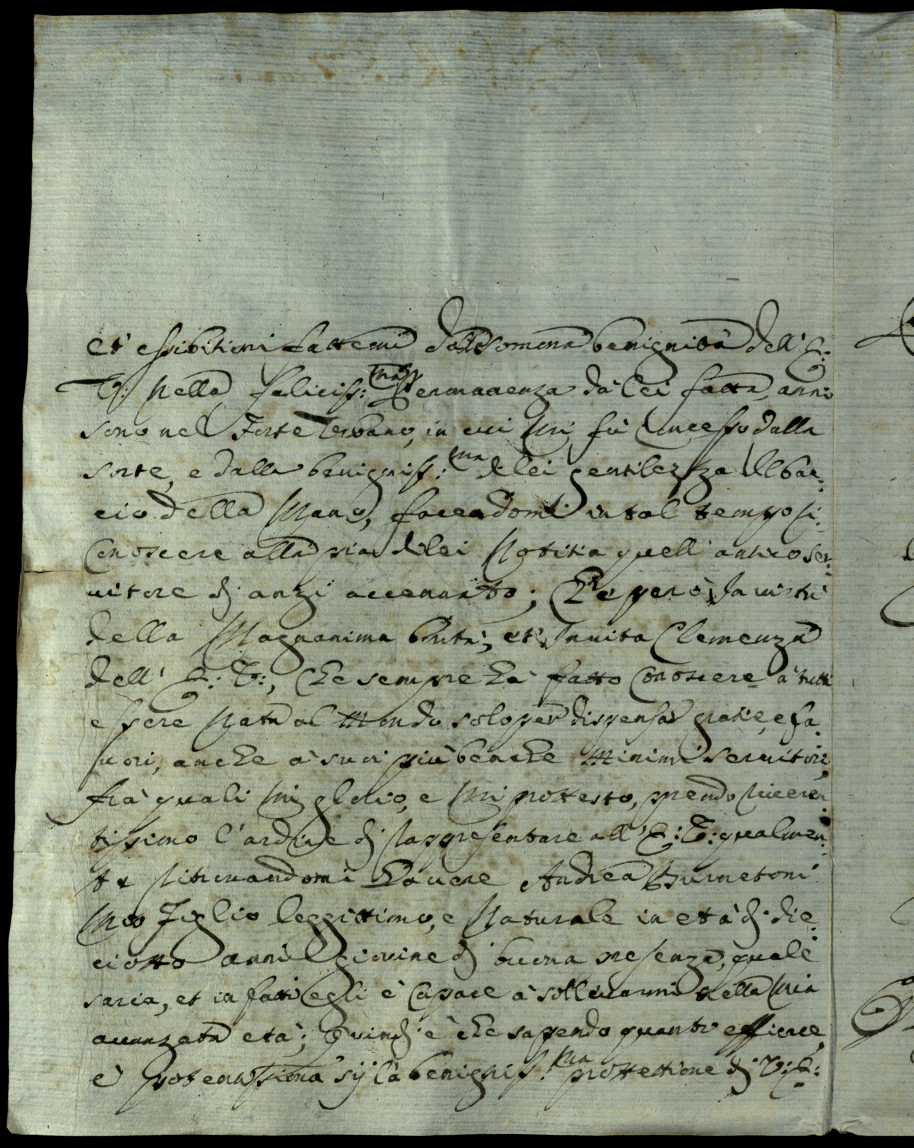 et essibitioni fattemi dalla somma benignità dell' E:
V: nella feliciss:ma Permanenza da lei fatta, anni
sono nel Forte Urbano, in cui mi fù concesso dalla
sorte, e dalla benigniss:ma di lei gentilezza il bac-
cio della Mano, facendomi in tal tempo ri-
conoscere alla pia di lei Notitia quell' antico ser-
uitore di anzi accennato; Che però la virtù
della Magnanima bontà, et Inuita Clemenza
dell' E: V:, che sempre hà fatto conoscere à tutti
essere Nata al Mondo solo per dispensar gratie, e fa-
uori, anche à suoi più benche Minimi seruitori,
frà quali mi glorio, e mi protesto, prendo riueren-
tissimo l'ardire di rappresentare all' E: V: qualmen-
te ritrouandomi hauere Andrea
mio Figlio leggittimo, e naturale in età di die-
ciotto anni giouine di buona presenza, quale
saria, et in fatti egli è capace à solleuarmi nella mia
auanzata età; quindi è che sapendo quanto efficace,
e potentissima sij la benigniss:ma protettione di V: E: